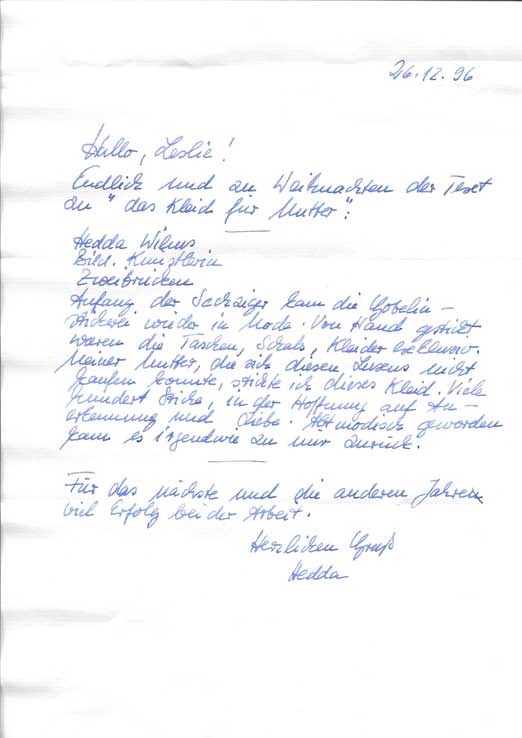 26.12.96
Hallo, Leslie!
Endlich und an Weihnachten der Text
zu "das Kleid für Mutter":
Hedda Wilms
Bild. Kunztlerin
Zweibrücken
Anfang der Sechziger kam die Gobelin-
stickerei wieder in Mode. Von Hand gestickt
waren die Taschen, Schals, Kleider exklusiv.
Meiner Mutter, die sich diesen Luxus nicht
kaufen konnte, stickte ich dieses Kleid. Viele
hundert Stiche, in der Hoffnung auf An-
erkennung und Liebe. Altmodisch geworden
kam es irgendwie zu mir zurück.
Für das nächste und die anderen Jahren
viel Erfolg bei der Arbeit.
Herzlichen Gruß
Hedda